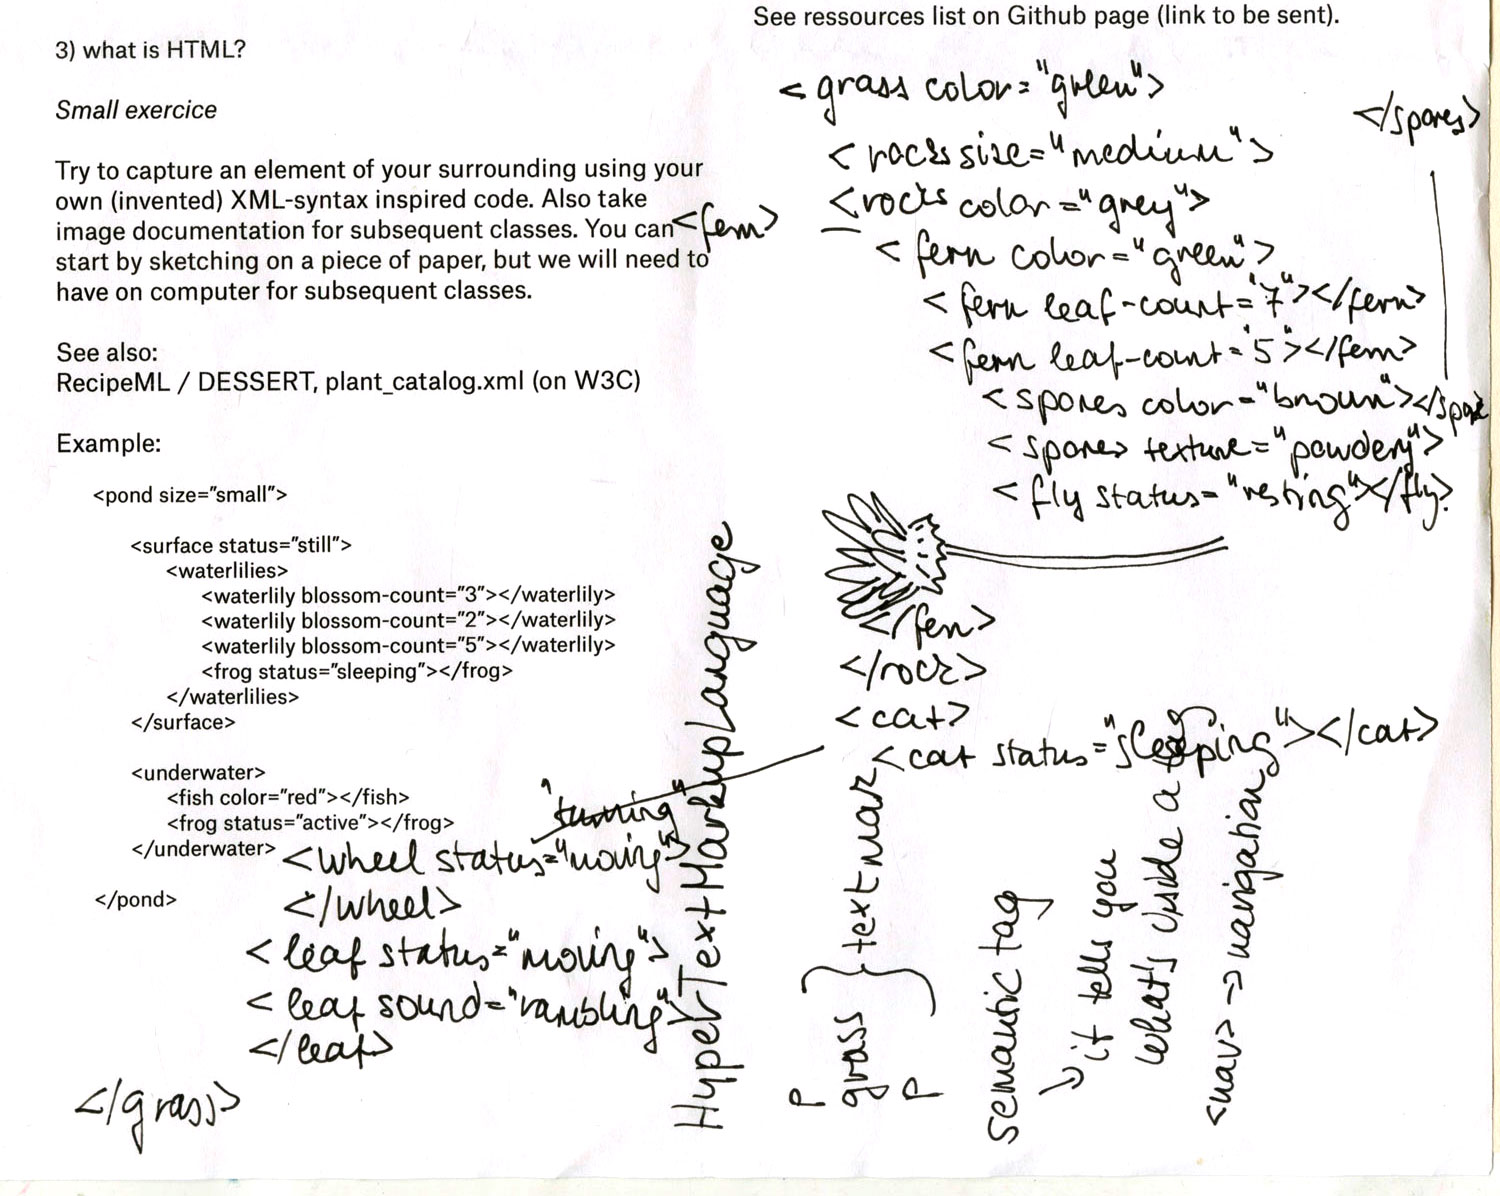 See ressources list on Github page (link to be sent).
3) what is HTML?
Small exercice
Try to capture an element of your surrounding using your
own (invented) XML-syntax inspired code. Also take
image documentation for subsequent classes. You can
start by sketching on a piece of paper, but we will need to
have on computer for subsequent classes.
See also:
RecipeML / DESSERT, plant_catalog.xml (on W3C)
Example:
<pond size="small">
<surface status="still">
<waterlilies>
<waterlily blossom-count="3"></waterlily>
<waterlily blossom-count="2"></waterlily>
<waterlily blossom-count="5"></waterlily>
<frog status="sleeping"></frog>
</waterlilies>
</surface>
<underwater>
<fish color="red"></fish>
<frog status="active"></frog>
</underwater>
</pond>
<grass color="green">
<rocks size="medium">
<rocks color="grey">
<fern>
<fern color="green">
<fern leaf-count="7"></fern>
<fern leaf-count="5"></fern>
<spores color="brown"></spores
<spores texture="powdery">
</spores>
<fly status="resting"></fly>
</fern>
</rock>
<cat>
<cat status="sleeping"></cat>
"turning"
<wheel status="moving">
</wheel>
<leaf status="moving">
<leaf sound="rambling">
</leaf>
</grass>
HyperTextMarkupLanguage
P
grass } textmar
P
semantic tag
it tells you
what's inside a tag
<nav> -> navigation